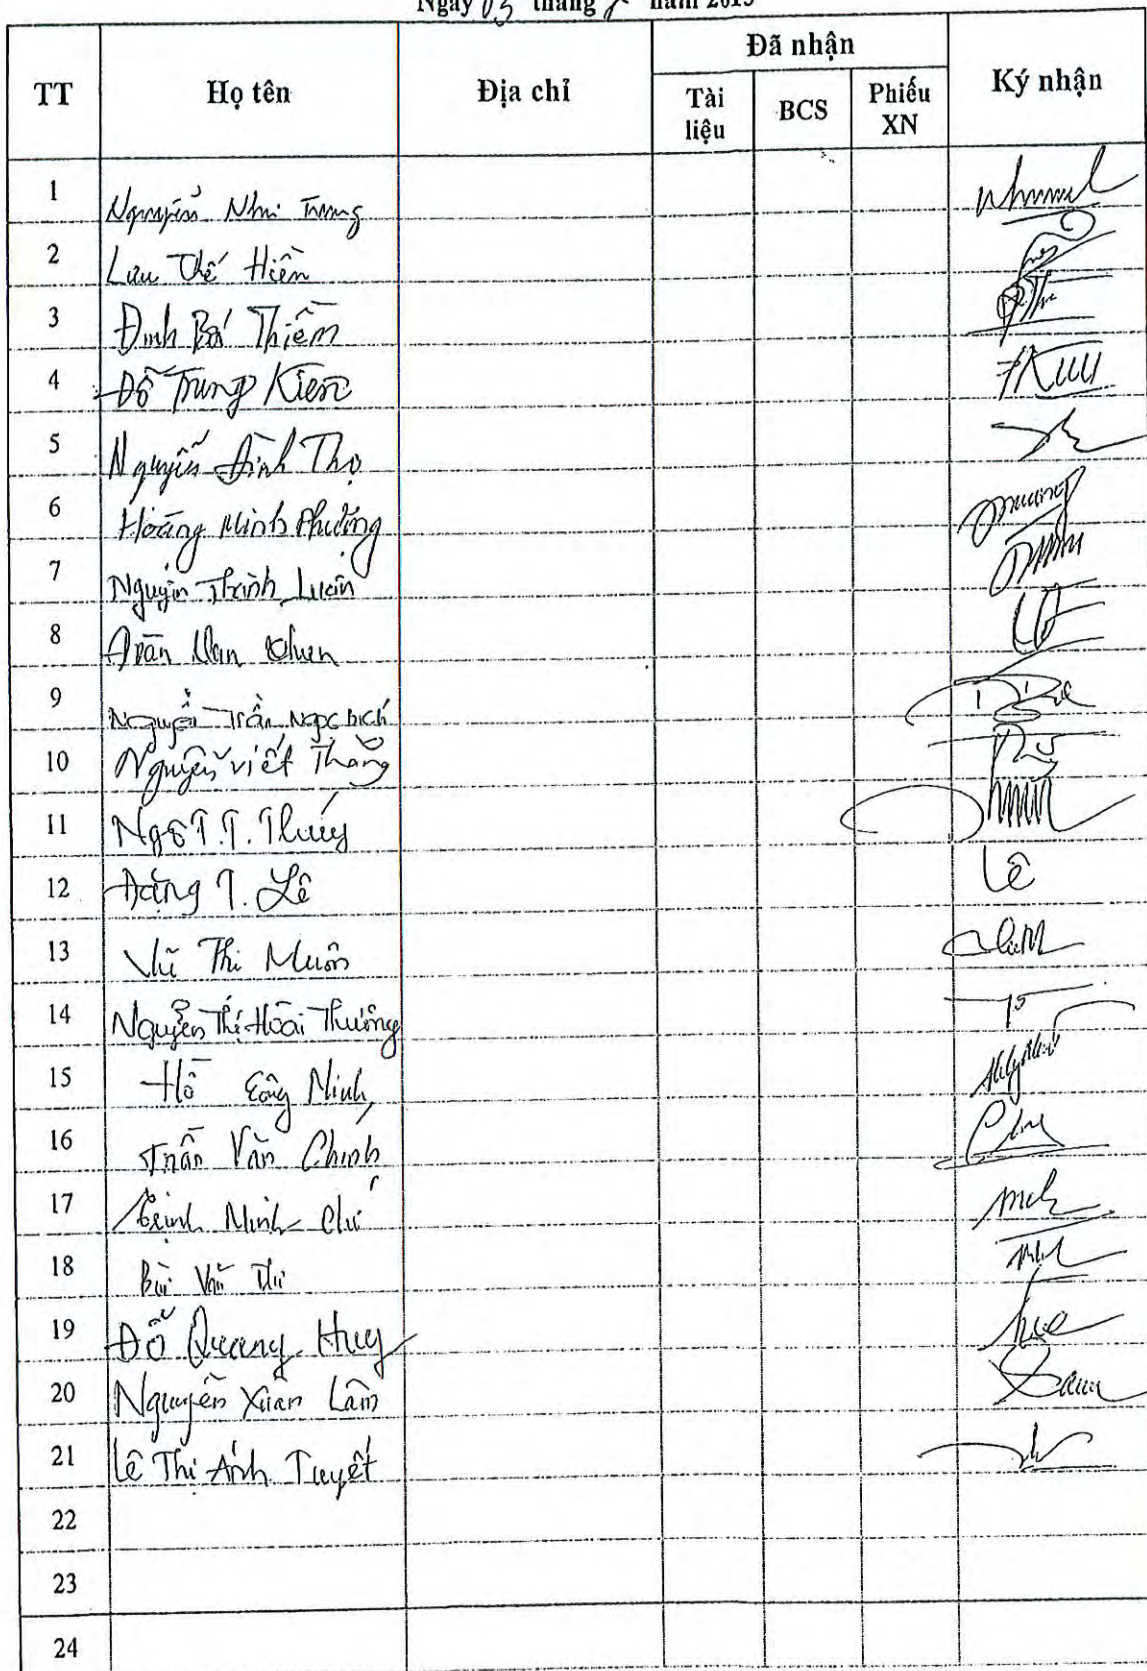 Ngày 03 tháng năm 2015
Đã nhận
TT Họ tên Địa chỉ Tài liệu BCS Phiếu XN Ký nhận
1 Nguyễn Như Trung
2 Lưu Thế Hiền
3 Đinh Bá Thiềm
4 Đỗ Trung Kiên
5 Nguyễn Đình Thọ
6 Hoàng Minh Phường
7 Nguyễn Thành Luân
8 Trần Văn
9 Nguyễn Trần Ngọc Bích
10 Nguyễn Viết Thắng
11 Ngô T.T. Thúy
12 Đặng T. Lê Lê
13 Vũ Thị Muôn
14 Nguyễn Thị Hoài Thương
15 Hồ Công Minh
16 Trần Văn Chính
17 Trịnh Minh Chí
18 Bùi Văn
19 Đỗ Quang Huy
20 Nguyễn Xuân Lâm
21 Lê Thị Ánh Tuyết
22
23
24